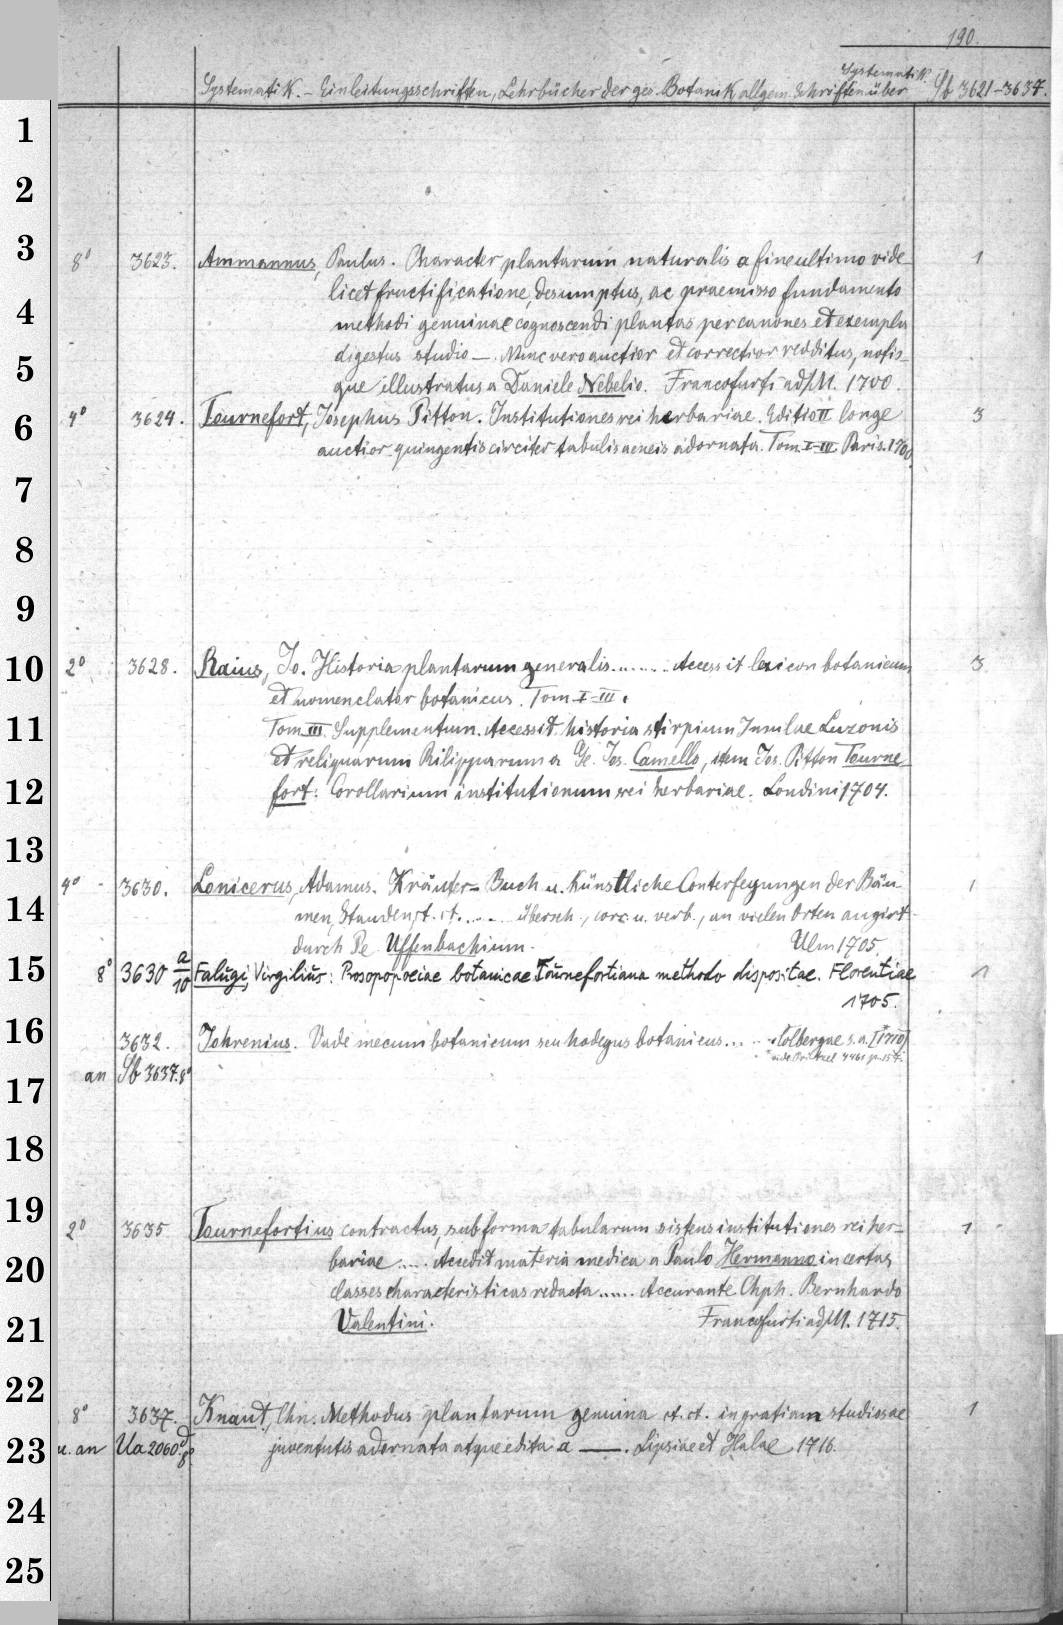 1
2
3
4
5
6
7
8
9
10
11
12
13
14
15
16
17
18
19
20
21
22
23
24
25
190.
Systematik. – Einleitungsschriften, Lehrbücher der ges. Botanik allgem. Schriften über Systematik. Sb 3621–3637.
8° 3623. Ammannus, Paulus. Character plantarum naturalis a fine ultimo vide- 1
licet fructificatione, desumptus, ac praemisso fundamento
methodi genuinae cognoscendi plantas per canones et exempla
digestus studio —. Nunc vero auctior et correctior redditus, notis-
que illustratus a Daniele Nebelio. Francofurti ad/M. 1700.
4° 3624. Tournefort, Josephus Pitton. Institutiones rei herbariae. Editio II longe 3
auctior quingentis circiter tabulis aeneis adornata. Tom. I–III. Paris. 1700.
2° 3628. Raius, Jo. Historia plantarum generalis........ Accessit lexicon botanicum 3
et nomenclator botanicus. Tom I–III.
Tom. III. Supplementum. Accessit historia stirpium Insulae Luzonis
et reliquarum Philipparum a Ge. Jos. Camello, item Jos. Pitton Tourne-
fort: Corollarium institutionum rei herbariae. Londini 1704.
4° - 3630. Lonicerus, Adamus. Kräuter-Buch u. Künstliche Conterfeyungen der Bäu- 1
men, Stauden, et. ct. .... übersch., corr. u. verb., an vielen Orten augirt
durch Pe. Uffenbachium. Ulm 1705.
8° 3630 a/10 Falugi, Virgilius: Prosopopoeiae botanicae Tournefortiana methodo dispositae. Florentiae 1
1705.
3632. Johrenius. Vade mecum botanicum seu hodegus botanicus..... Colbergae s.a. [1710]
vide Pritzel 4461 p. 157.
an Sb 3637. 8°
2° 3635 Tournefortius contractus, sub forma tabularum sistens institutiones rei her- 1
bariae ..... Accedit materia medica a Paulo Hermanno in certas
classes characteristicas redacta ...... Accurante Chph. Bernhardo
Valentini. Francofurti ad/M. 1715.
8° 3637. Knaut, Chn. Methodus plantarum genuina et. ct. in gratiam studiosae 1
u. an Ua 2060 d 8° juventutis adornata atque edita a —. Lipsiae et Halae 1716.